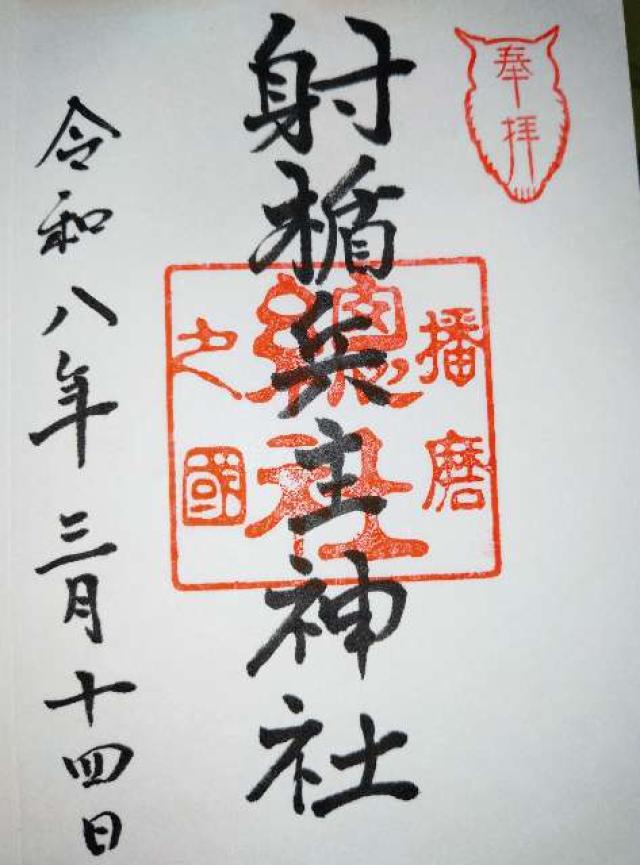 奉拝
射楯兵主神社
播磨
總社
之國
令和八年三月十四日